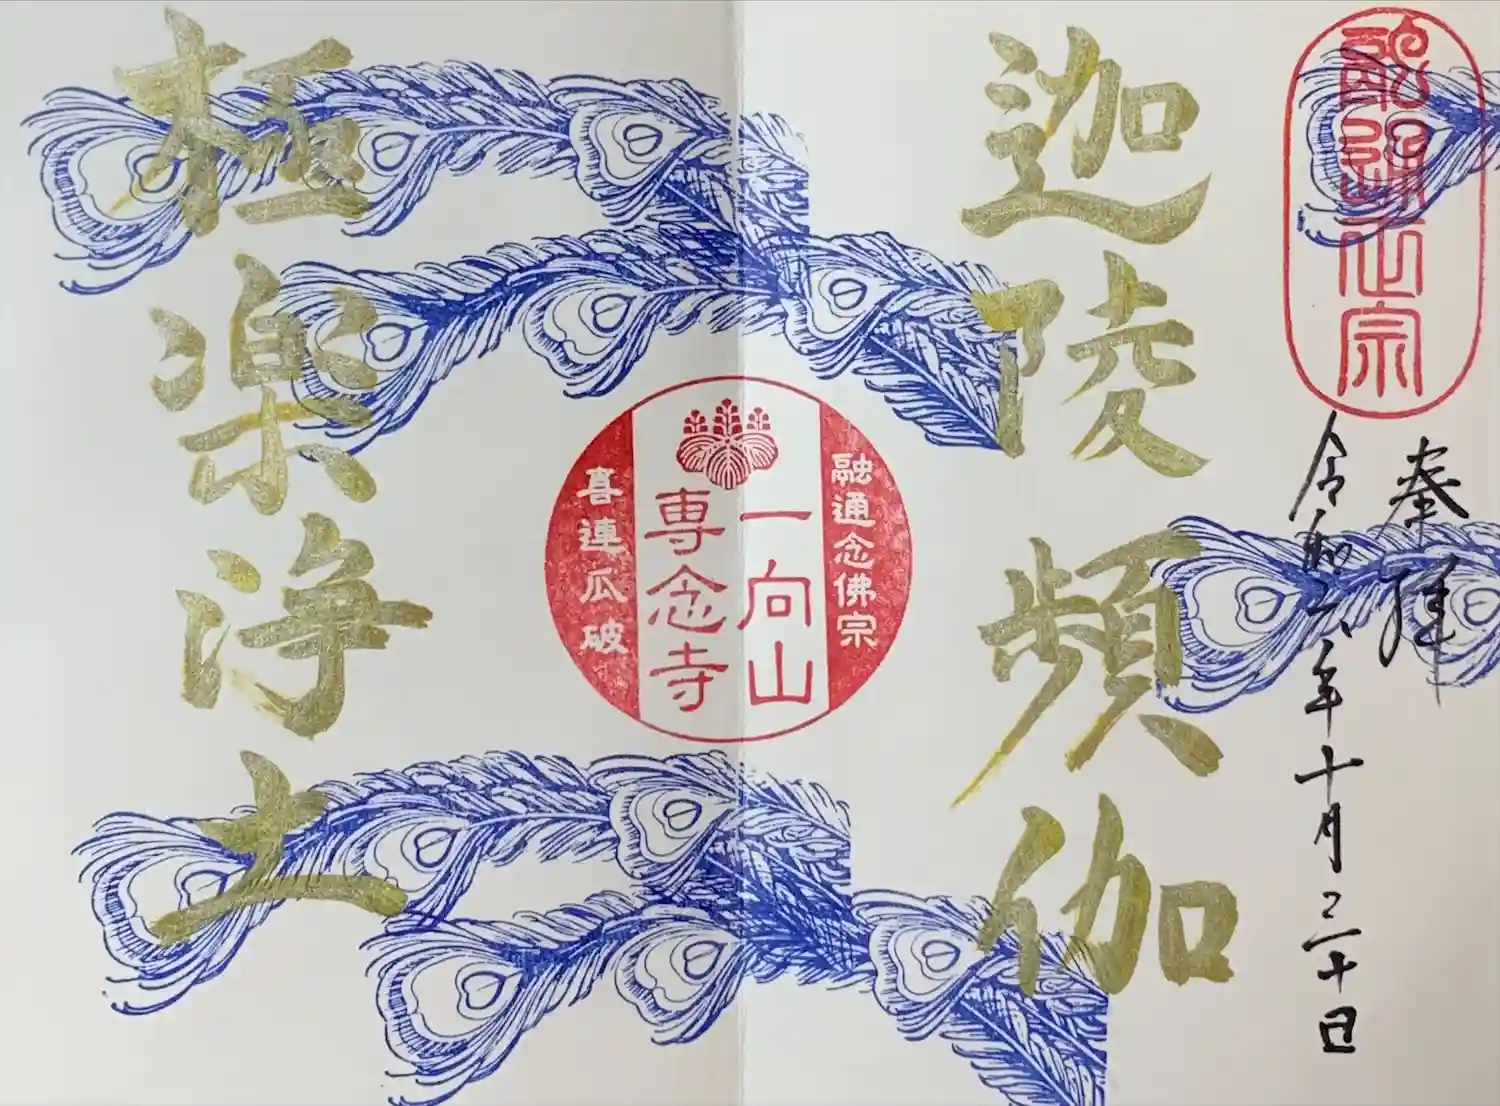 融通正宗
奉拝
令和六年十月二十日
迦陵頻伽
融通念佛宗
一向山
専念寺
喜連瓜破
極楽浄土